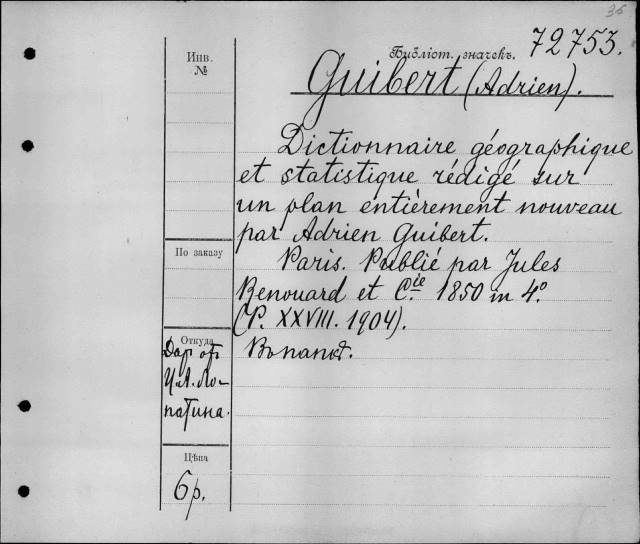 36
Инв.
№
Библіот. значекъ. 72753.
Guibert (Adrien).
Dictionnaire géographique
et statistique rédigé sur
un plan entièrement nouveau
par Adrien Guibert.
По заказу
Paris. Publié par Jules
Renouard et Cie. 1850 in 4º.
(P. XXVIII. 1904).
Откуда
Даръ отъ
И.А. Ло-
патина.
Цѣна
6 р.